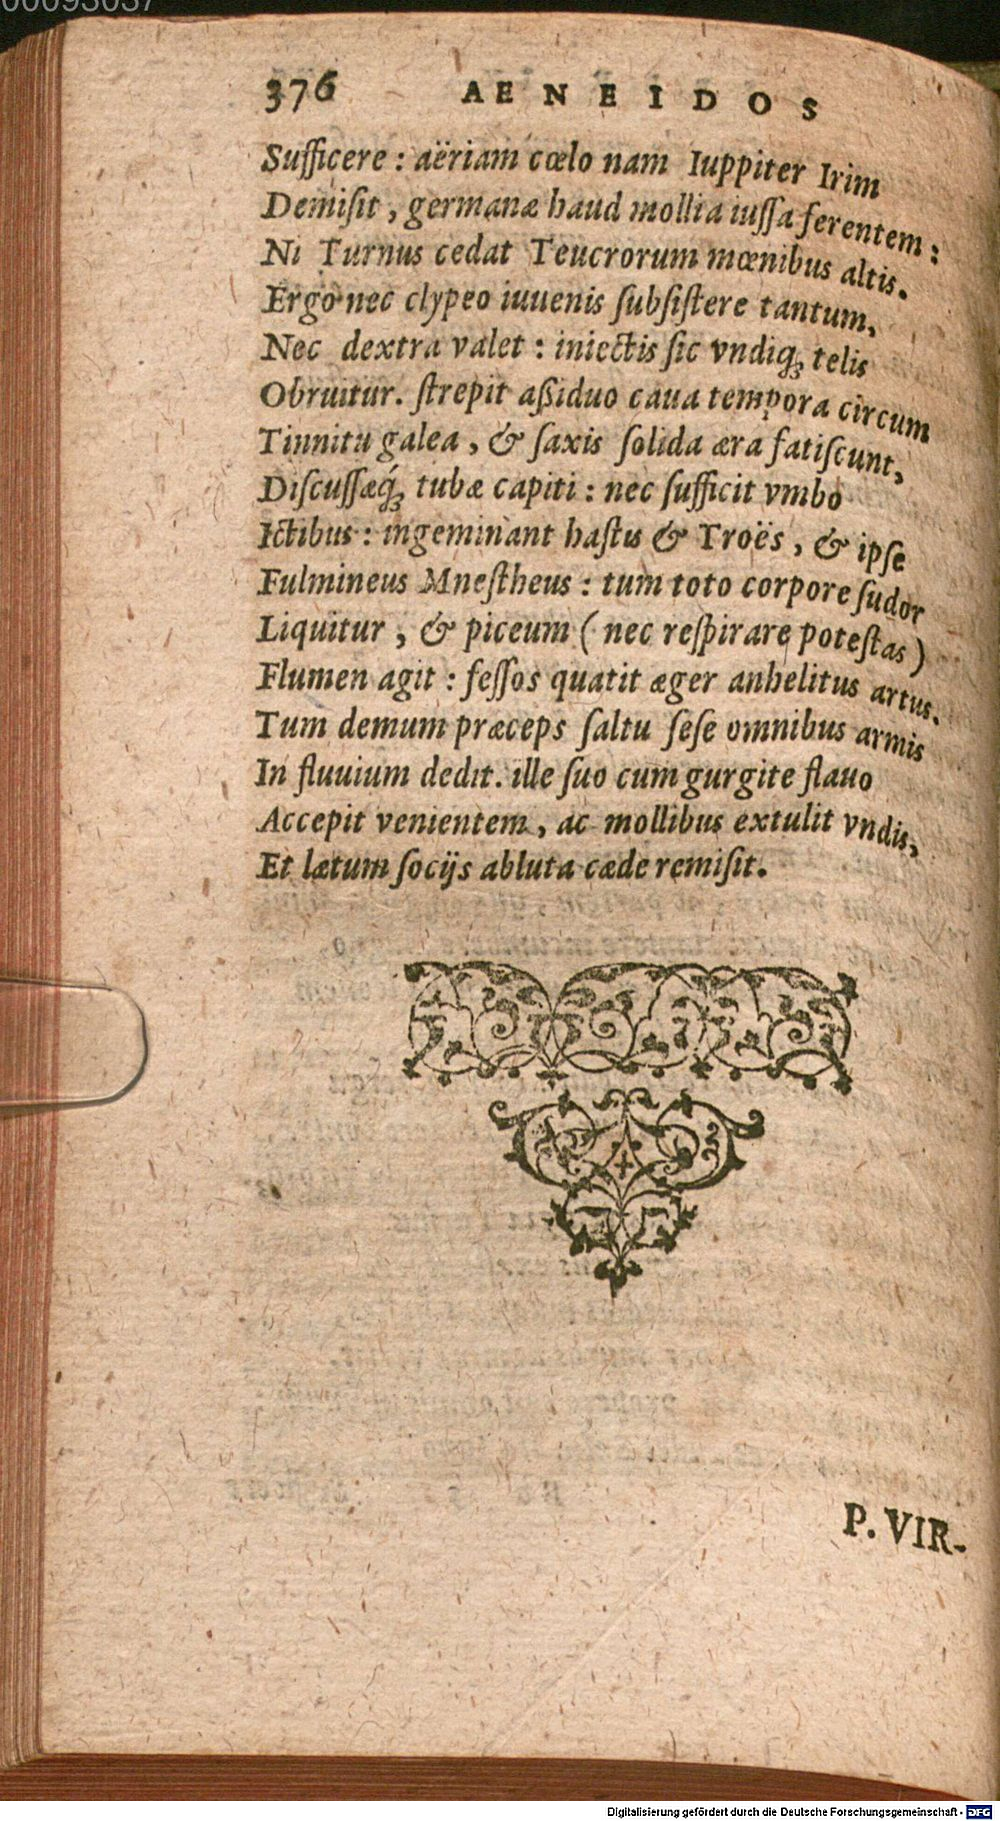 00093037
376 AENEIDOS
Sufficere : aëriam cœlo nam Iuppiter Irim
Demiſit, germanæ haud mollia iuſſa ferentem :
Ni Turnus cedat Teucrorum mœnibus altis.
Ergo nec clypeo iuuenis ſubſiſtere tantum,
Nec dextra valet : iniectis ſic vndiq; telis
Obruitur. ſtrepit aßiduo caua tempora circum
Tinnitu galea, & ſaxis ſolida æra fatiſcunt,
Diſcuſſæq́; iubæ capiti : nec ſufficit vmbo
Ictibus : ingeminant haſtis & Troës, & ipſe
Fulmineus Mneſtheus : tum toto corpore ſudor
Liquitur, & piceum ( nec reſpirare poteſtas )
Flumen agit : feſſos quatit æger anhelitus artus.
Tum demum præceps ſaltu ſeſe omnibus armis
In fluuium dedit. ille ſuo cum gurgite flauo
Accepit venientem, ac mollibus extulit vndis,
Et lætum ſocijs abluta cæde remiſit.
P. VIR-
Digitalisierung gefördert durch die Deutsche Forschungsgemeinschaft - DFG